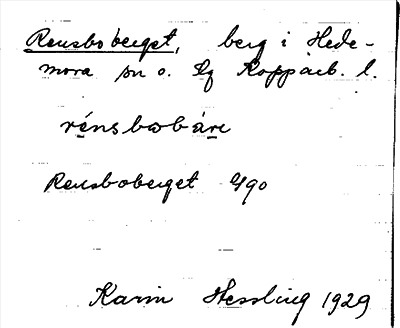 Rensboberget, berg i Hede-
mora sn o. lg Kopparb. l.
rénsbobáre
Rensboberget 4/90
Karin Hessling 1929